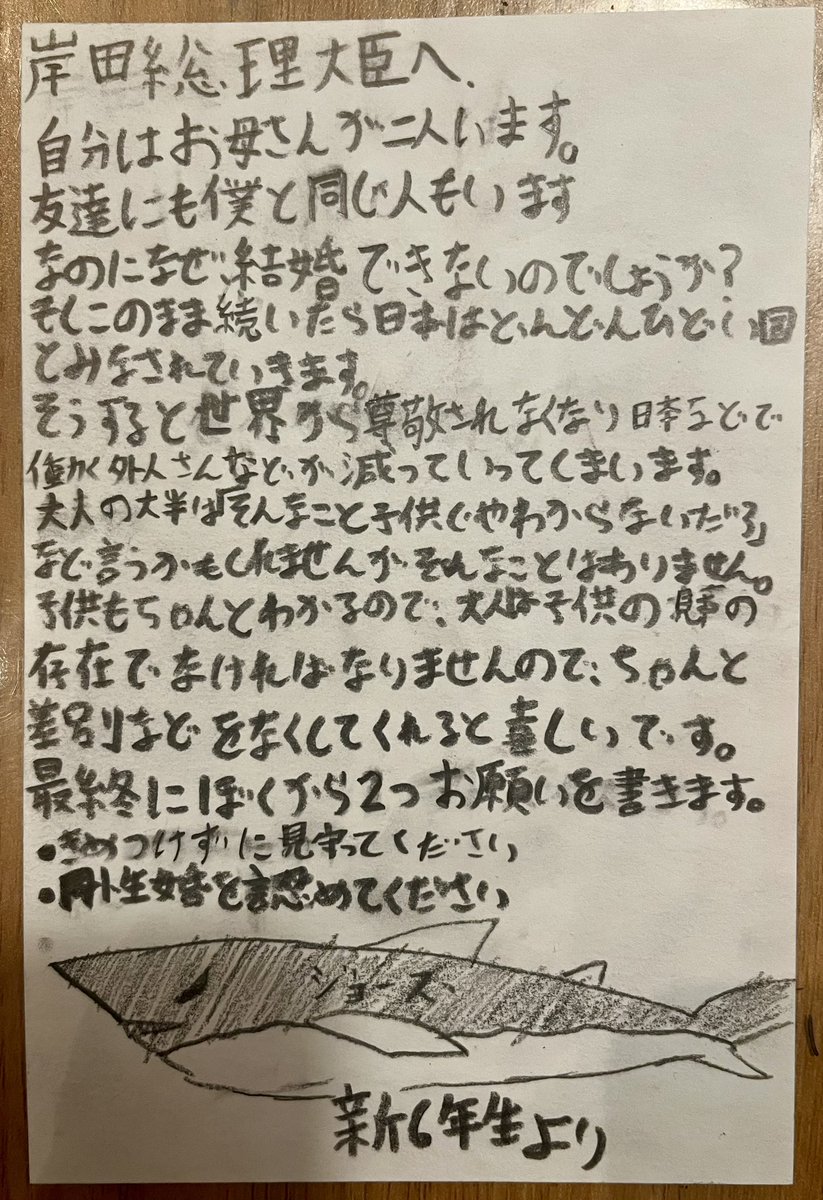 岸田総理大臣へ.
自分はお母さんが二人います。
友達にも僕と同じ人もいます
なのになぜ、結婚できないのでしょうか?
もしこのまま続いたら日本はどんどんひどい国
とみなされていきます。
そうすると世界から尊敬されなくなり日本などで
働く外人さんなどが減っていってしまいます。
大人の大半は「そんなこと子供じゃわからないだろ」
など言うかもしれませんがそんなことはありません。
子供もちゃんとわかるので、大人は子供の見本の
存在でなければなりませんので、ちゃんと
差別などをなくしてくれると嬉しいです。
最終にぼくから2つお願いを書きます。
・きめつけずに見守ってください
・同性婚を認めてください
ジョーズ
新6年生より